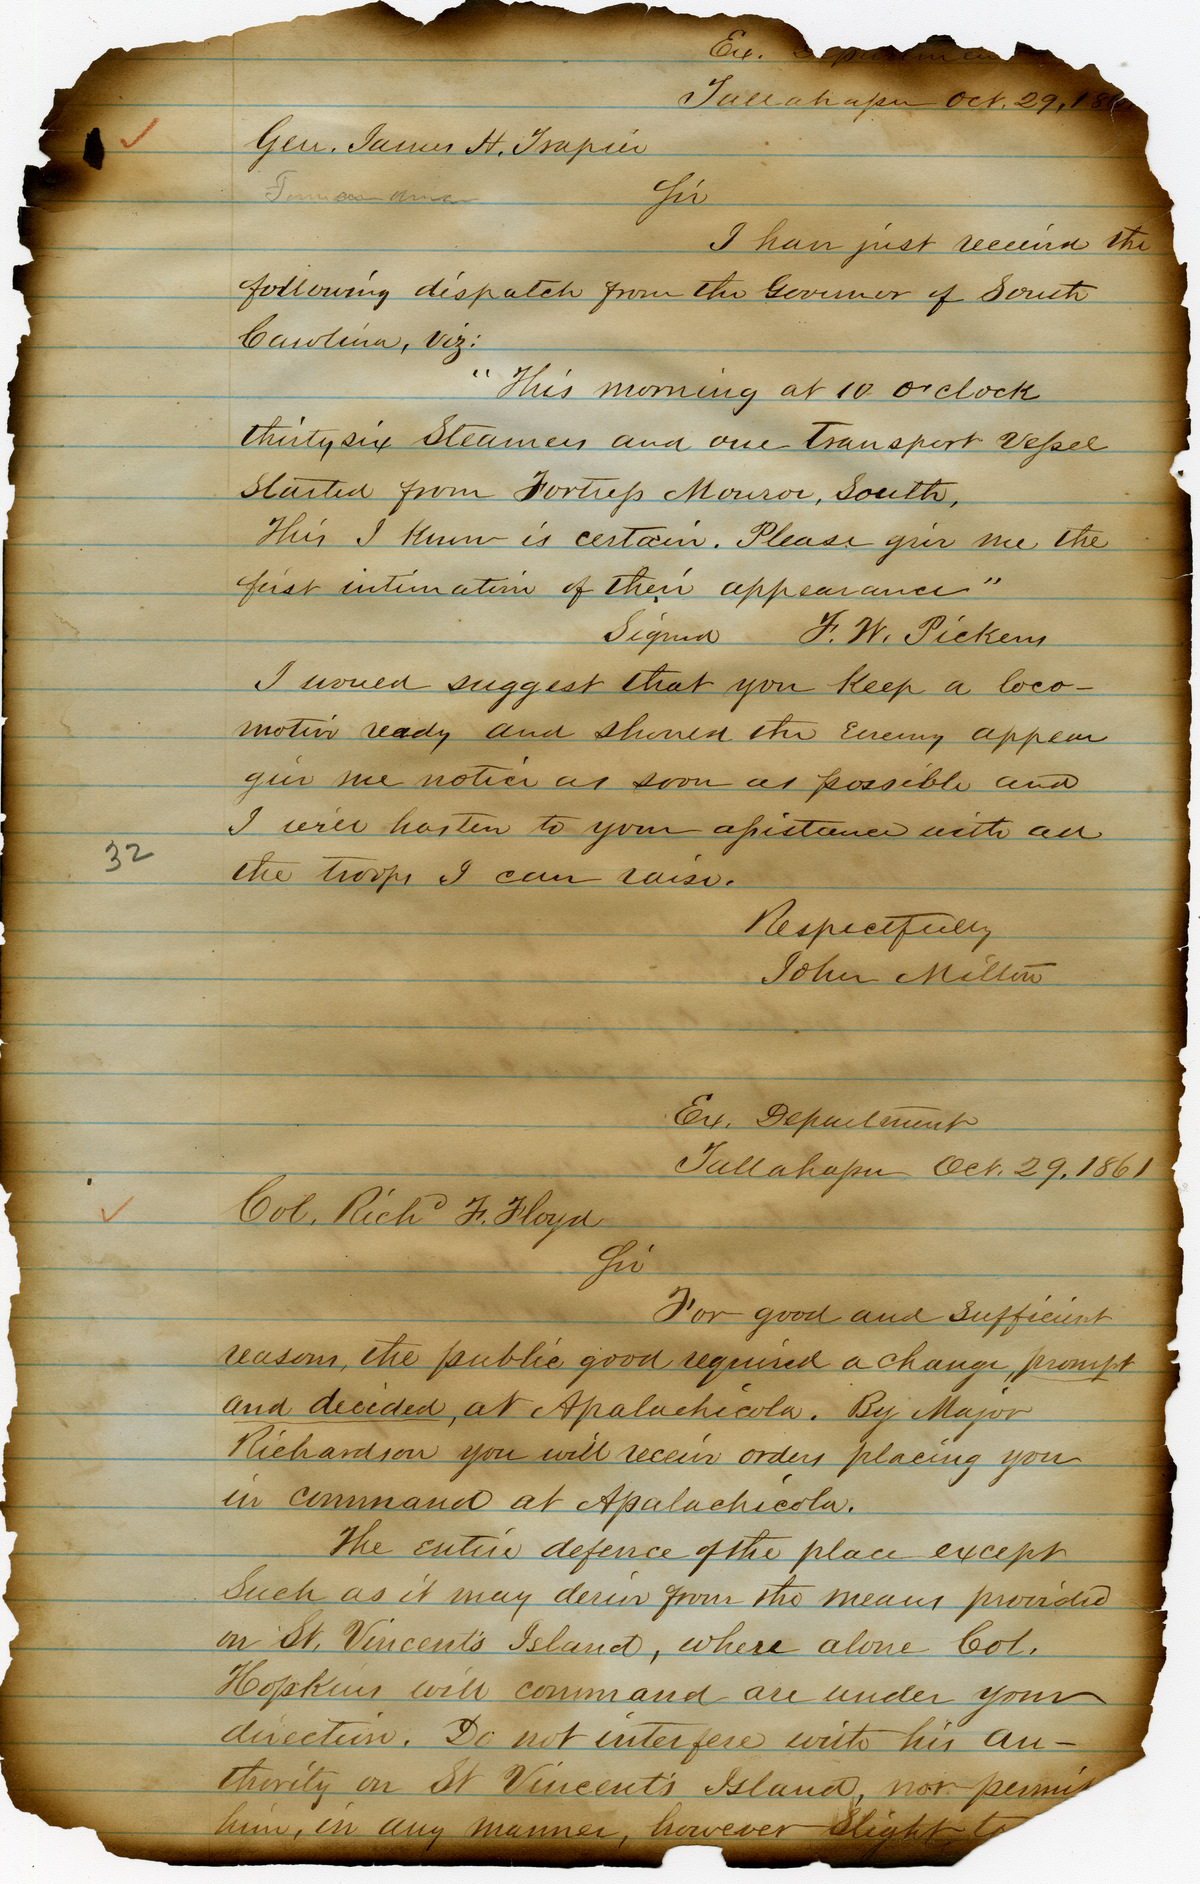 Ex. Department
Tallahassee Oct. 29, 186
Gen. James H. Trapier
Sir
I have just received the
following dispatch from the Governor of South
Carolina, viz:
"This morning at 10 o'clock
thirty six Steamers and one Transport Vessel
started from Fortress Monroe, South,
This I know is certain. Please give me the
first intimation of their appearance"
Signed F. W. Pickens
I would suggest that you keep a loco-
motive ready and should the Enemy appear
give me notice as soon as possible and
I will hasten to your assistance with all
the troops I can raise.
32
Respectfully
John Milton
Ex. Department
Tallahassee Oct. 29, 1861
Col. Richd F. Floyd
Sir
For good and sufficient
reasons, the public good required a change, prompt
and decided, at Apalachicola. By Major
Richardson you will receive orders placing you
in command at Apalachicola.
The entire defence of the place except
such as it may derive from the means provided
on St. Vincent's Island, where alone Col.
Hopkins will command are under your
direction. Do not interfere with his au-
thority on St Vincent's Island, nor permit
him, in any manner, however slight to